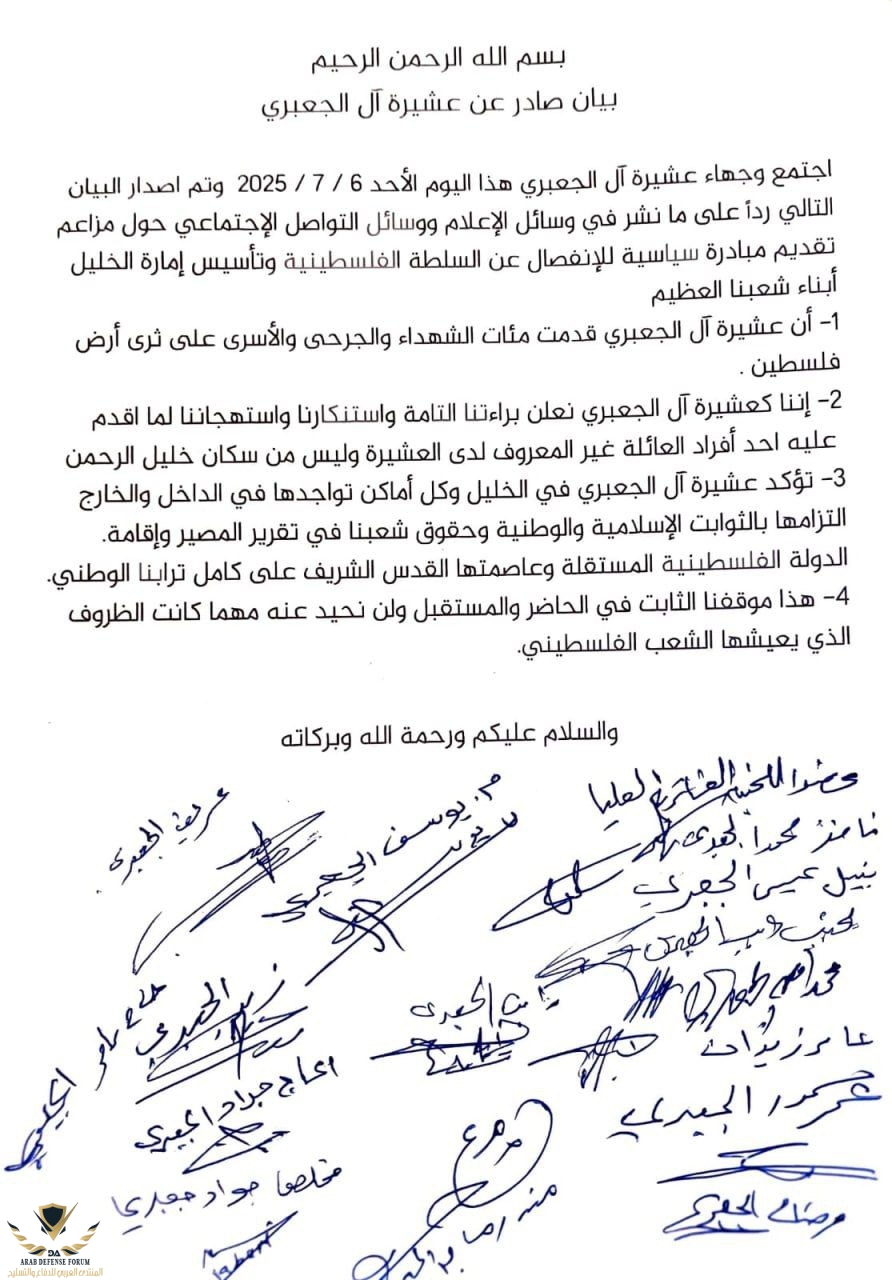 بسم الله الرحمن الرحيم
بيان صادر عن عشيرة آل الجعبري
اجتمع وجهاء عشيرة آل الجعبري هذا اليوم الأحد 6 / 7 / 2025 وتم اصدار البيان
التالي رداً على ما نشر في وسائل الإعلام ووسائل التواصل الإجتماعي حول مزاعم
تقديم مبادرة سياسية للإنفصال عن السلطة الفلسطينية وتأسيس إمارة الخليل
أبناء شعبنا العظيم
1- أن عشيرة آل الجعبري قدمت مئات الشهداء والجرحى والأسرى على ثرى أرض
فلسطين .
2- إننا كعشيرة آل الجعبري نعلن براءتنا التامة واستنكارنا واستهجاننا لما اقدم
عليه احد أفراد العائلة غير المعروف لدى العشيرة وليس من سكان خليل الرحمن
3- تؤكد عشيرة آل الجعبري في الخليل وكل أماكن تواجدها في الداخل والخارج
التزامها بالثوابت الإسلامية والوطنية وحقوق شعبنا في تقرير المصير وإقامة.
الدولة الفلسطينية المستقلة وعاصمتها القدس الشريف على كامل ترابنا الوطني.
4- هذا موقفنا الثابت في الحاضر والمستقبل ولن نحيد عنه مهما كانت الظروف
الذي يعيشها الشعب الفلسطيني.
والسلام عليكم ورحمة الله وبركاته
م. يوسف الجعبري
نبيل عيسى الجعبري
عامر زيدان
الحاج جواد الجعبري
الجعبري
جواد جعبري
ARAB DEFENSE FORUM
المنتدى العربي للدفاع والتسليح